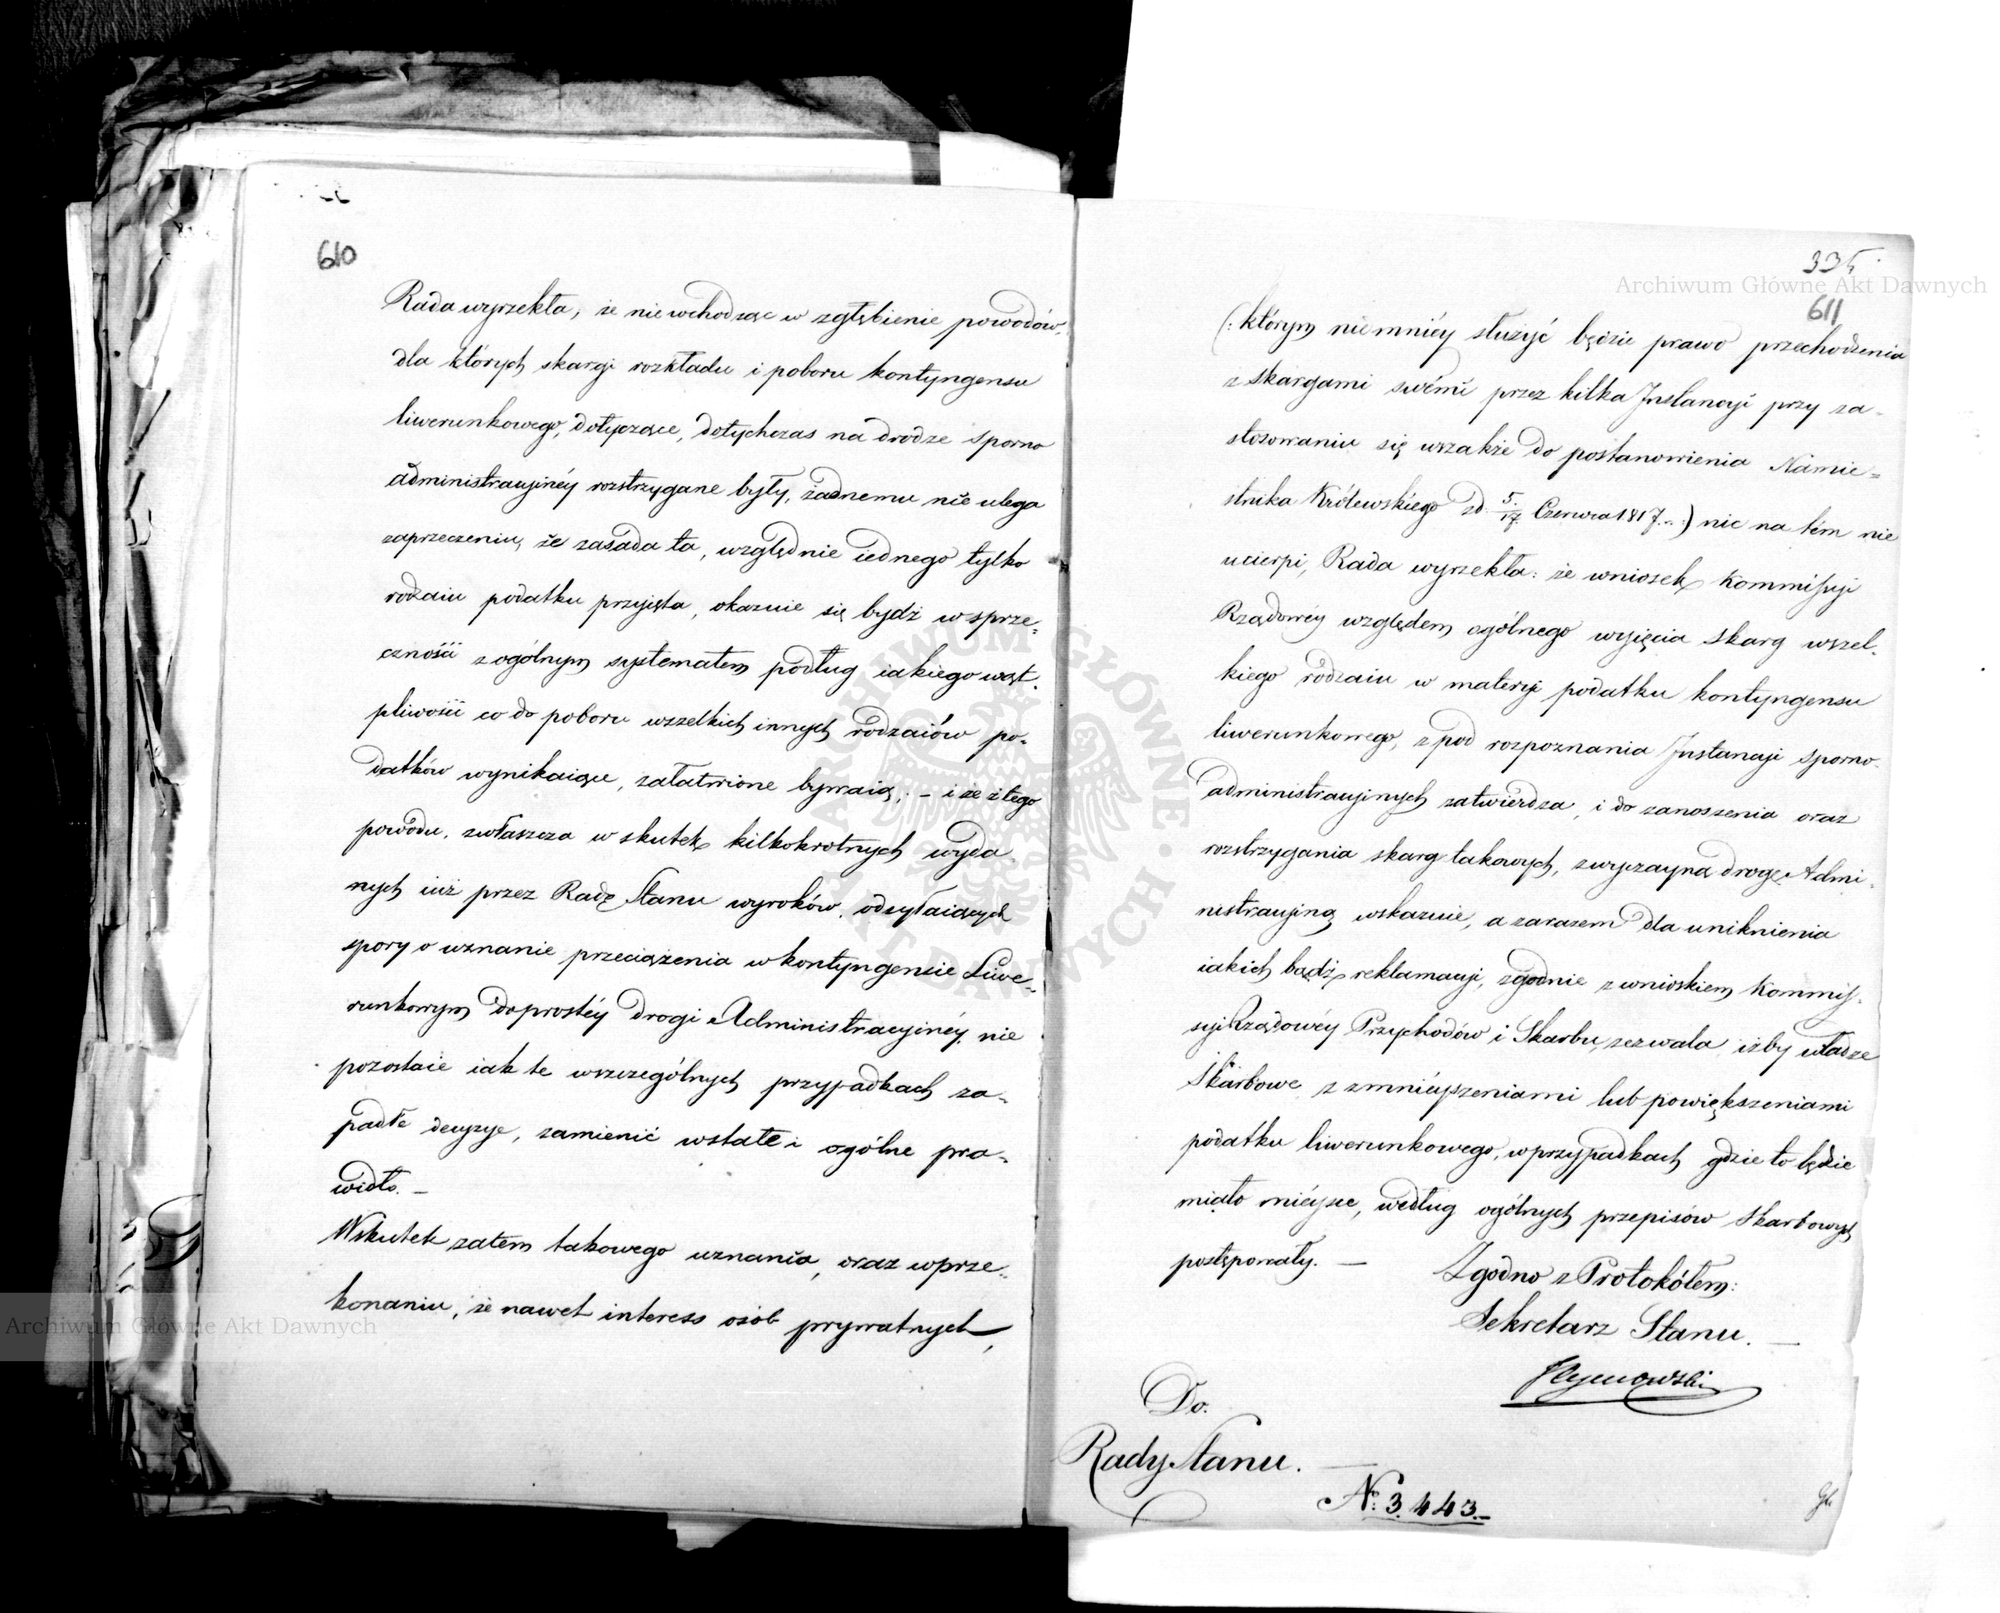 610
Rada wyrzekła, że niewchodząc w zgłębienie powodów,
dla których skargi rozkładu i poboru kontyngensu
liwerunkowego, dotyczące, dotychczas na drodze sporno
administracyinéy rozstrzygane były, żadnemu nie ulega
zaprzeczeniu, że zasada ta, względnie iednego tylko
rodzaiu podatku przyięta, okazuie się bydź w sprze-
czności z ogólnym systematem podług iakiego wąt-
pliwości co do poboru wszelkich innych rodzaiów po-
datków wynikaiące, załatwione bywaią; – i że z tego
powodu, zwłaszcza w skutek kilkokrotnych wyda
nych iuż przez Radę Stanu wyroków, odsyłaiących
spory o uznanie przeciążenia w kontyngensie Liwe-
runkowym do prostéy drogi Administracyinéy, nie
pozostaie iak te w szczególnych przypadkach za-
padłe decyzye, zamienić w stałe i ogólne pra-
widło. –
W skutek zatem takowego uznania, oraz w prze-
konaniu, że nawet interess osób prywatnych,
335
611
(: którym niemniéy służyć będzie prawo przechodzenia
z skargami swémi przez kilka Instancyi przy za-
stosowaniu się wszakże do postanowienia Namie-
stnika Królewskiego zd. 5/17 Czerwca 1817. :) nic na tém nie
ucierpi, Rada wyrzekła: że wniosek Kommissyi
Rządowéy względem ogólnego wyięcia skarg wszel-
kiego rodzaiu w materyi podatku kontyngensu
liwerunkowego, z pod rozpoznania Instancyi sporno-
administracyinych zatwierdza, i do zanoszenia oraz
rozstrzygania skarg takowych, zwyczayną drogę Admi-
nistracyiną wskazuie, a zarazem dla uniknienia
iakich bądź reklamacyi, zgodnie z wnioskiem Kommis-
syi Rządowéy Przychodów i Skarbu, zezwala, iżby władze
Skarbowe z zmniéyszeniami lub powiększeniami
podatku liwerunkowego, w przypadkach gdzie to będzie
miało miéysce, według ogólnych przepisów Skarbowych
postępowały. —
Zgodno z Protokółem:
Sekretarz Stanu. —
Do.
Rady Stanu. —
No: 3.443.–
Archiwum Główne Akt Dawnych
Archiwum Główne Akt Dawnych
ARCHIWUM GŁÓWNE AKT DAWNYCH